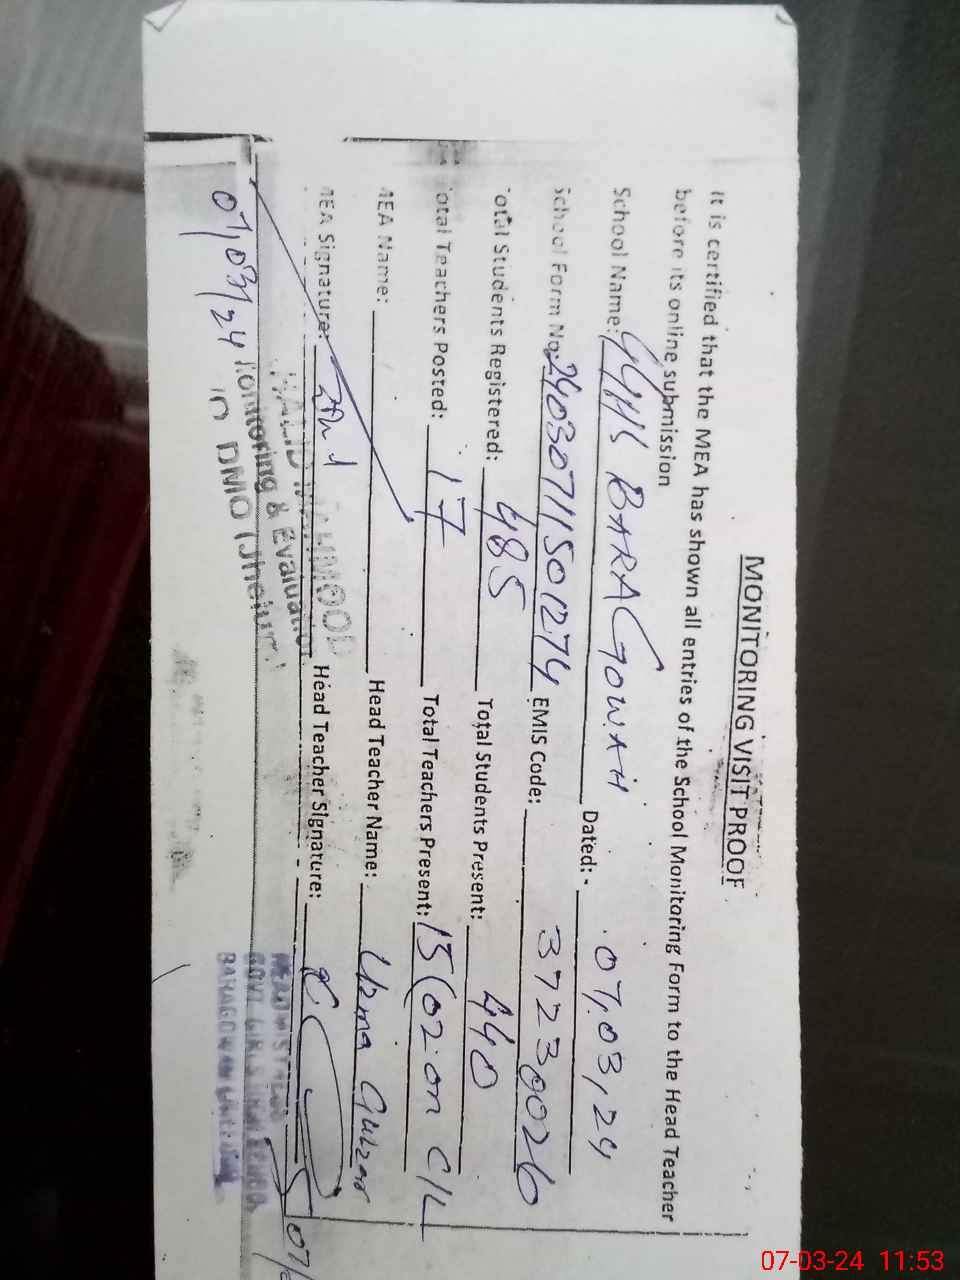 MONITORING VISIT PROOF
It is certified that the MEA has shown all entries of the School Monitoring Form to the Head Teacher
before its online submission
School Name: GGHS BARAGOWAH Dated: - 07,03,24
School Form No: 24030711501274 EMIS Code: 37230026
Total Students Registered: 485 Total Students Present: 440
Total Teachers Posted: 17 Total Teachers Present: 15 (02 on C/L
MEA Name: Head Teacher Name: Uzma Gulzar
MEA Signature: Head Teacher Signature:
07/03/24
MAHMOOD
Monitoring & Evaluation
DMO (Jhelum)
HEADMISTRESS
GOVT GIRLS HIGH SCHOOL
07-03-24 11:53